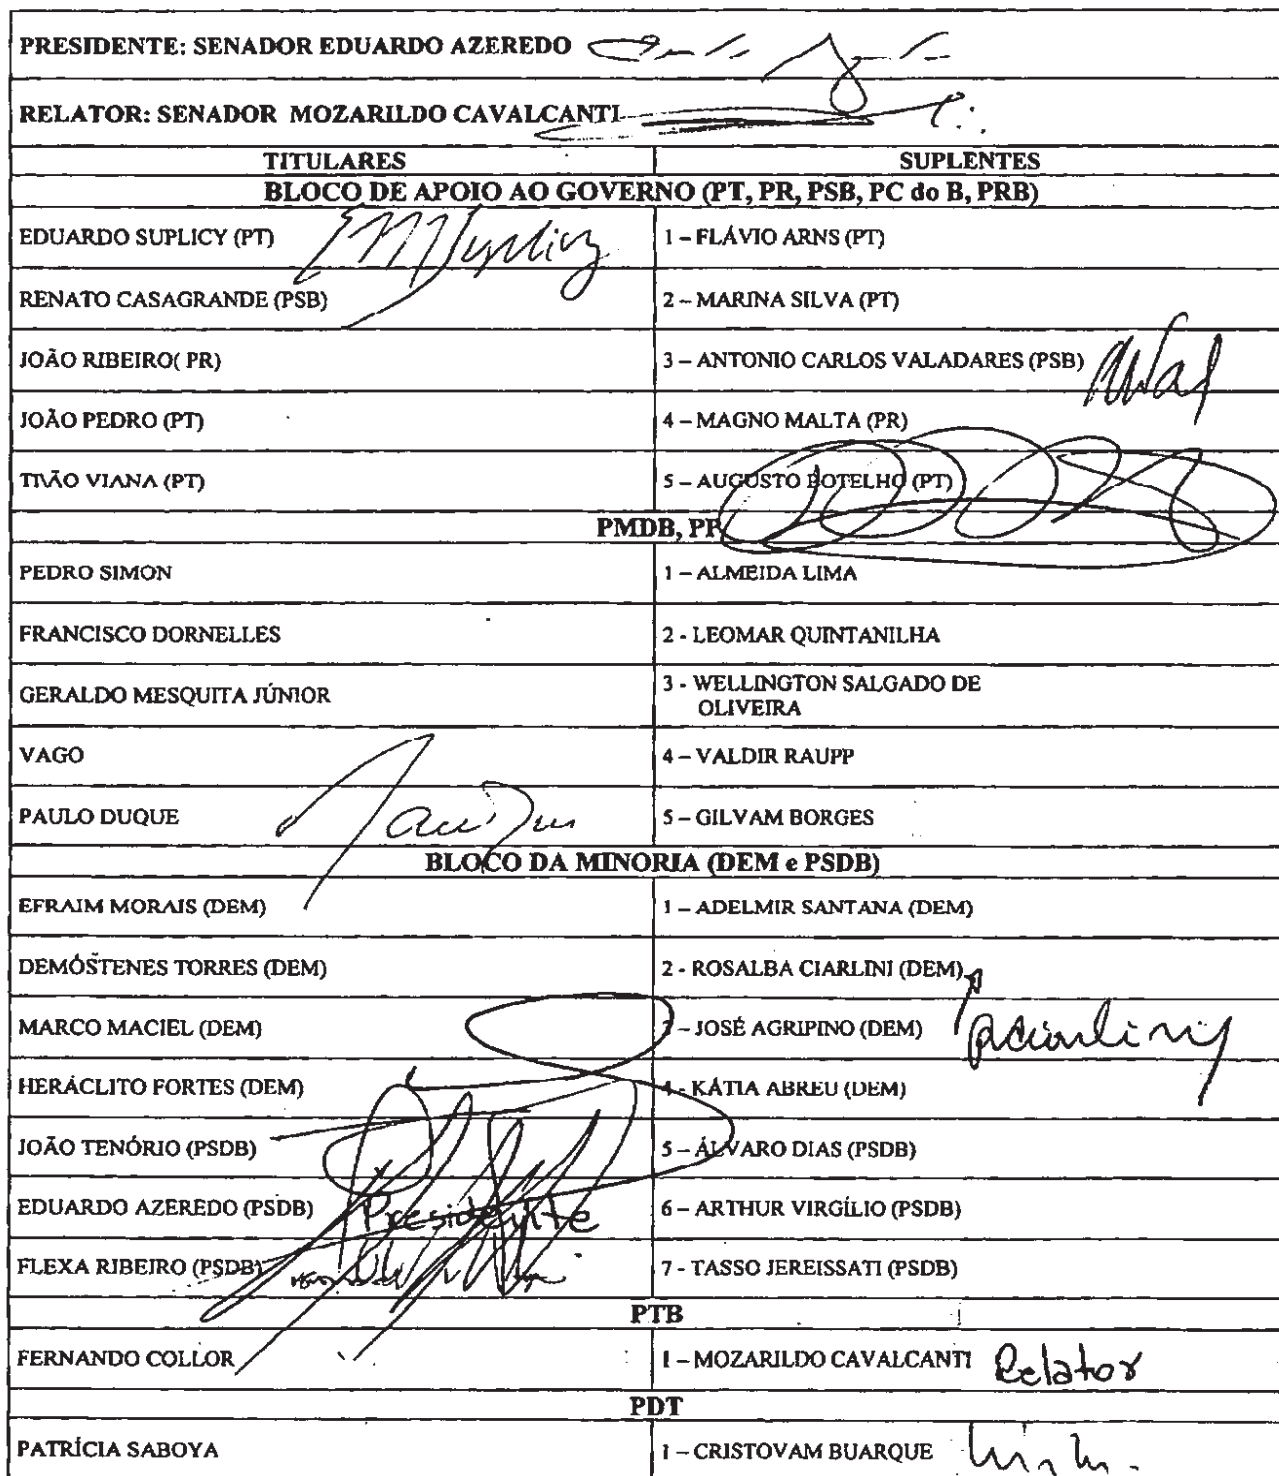 PRESIDENTE: SENADOR EDUARDO AZEREDO
RELATOR: SENADOR MOZARILDO CAVALCANTI
TITULARES SUPLENTES
BLOCO DE APOIO AO GOVERNO (PT, PR, PSB, PC do B, PRB)
EDUARDO SUPLICY (PT) 1 – FLÁVIO ARNS (PT)
RENATO CASAGRANDE (PSB) 2 – MARINA SILVA (PT)
JOÃO RIBEIRO( PR) 3 – ANTONIO CARLOS VALADARES (PSB)
JOÃO PEDRO (PT) 4 – MAGNO MALTA (PR)
TIÃO VIANA (PT) 5 – AUGUSTO BOTELHO (PT)
PMDB, PP
PEDRO SIMON 1 – ALMEIDA LIMA
FRANCISCO DORNELLES 2 - LEOMAR QUINTANILHA
GERALDO MESQUITA JÚNIOR 3 - WELLINGTON SALGADO DE
OLIVEIRA
VAGO 4 – VALDIR RAUPP
PAULO DUQUE 5 – GILVAM BORGES
BLOCO DA MINORIA (DEM e PSDB)
EFRAIM MORAIS (DEM) 1 – ADELMIR SANTANA (DEM)
DEMÓSTENES TORRES (DEM) 2 - ROSALBA CIARLINI (DEM)
MARCO MACIEL (DEM) 3 – JOSÉ AGRIPINO (DEM)
HERÁCLITO FORTES (DEM) 4 - KÁTIA ABREU (DEM)
JOÃO TENÓRIO (PSDB) 5 – ÁLVARO DIAS (PSDB)
EDUARDO AZEREDO (PSDB) Presidente 6 – ARTHUR VIRGÍLIO (PSDB)
FLEXA RIBEIRO (PSDB) 7 - TASSO JEREISSATI (PSDB)
PTB
FERNANDO COLLOR 1 – MOZARILDO CAVALCANTI Relator
PDT
PATRÍCIA SABOYA 1 – CRISTOVAM BUARQUE